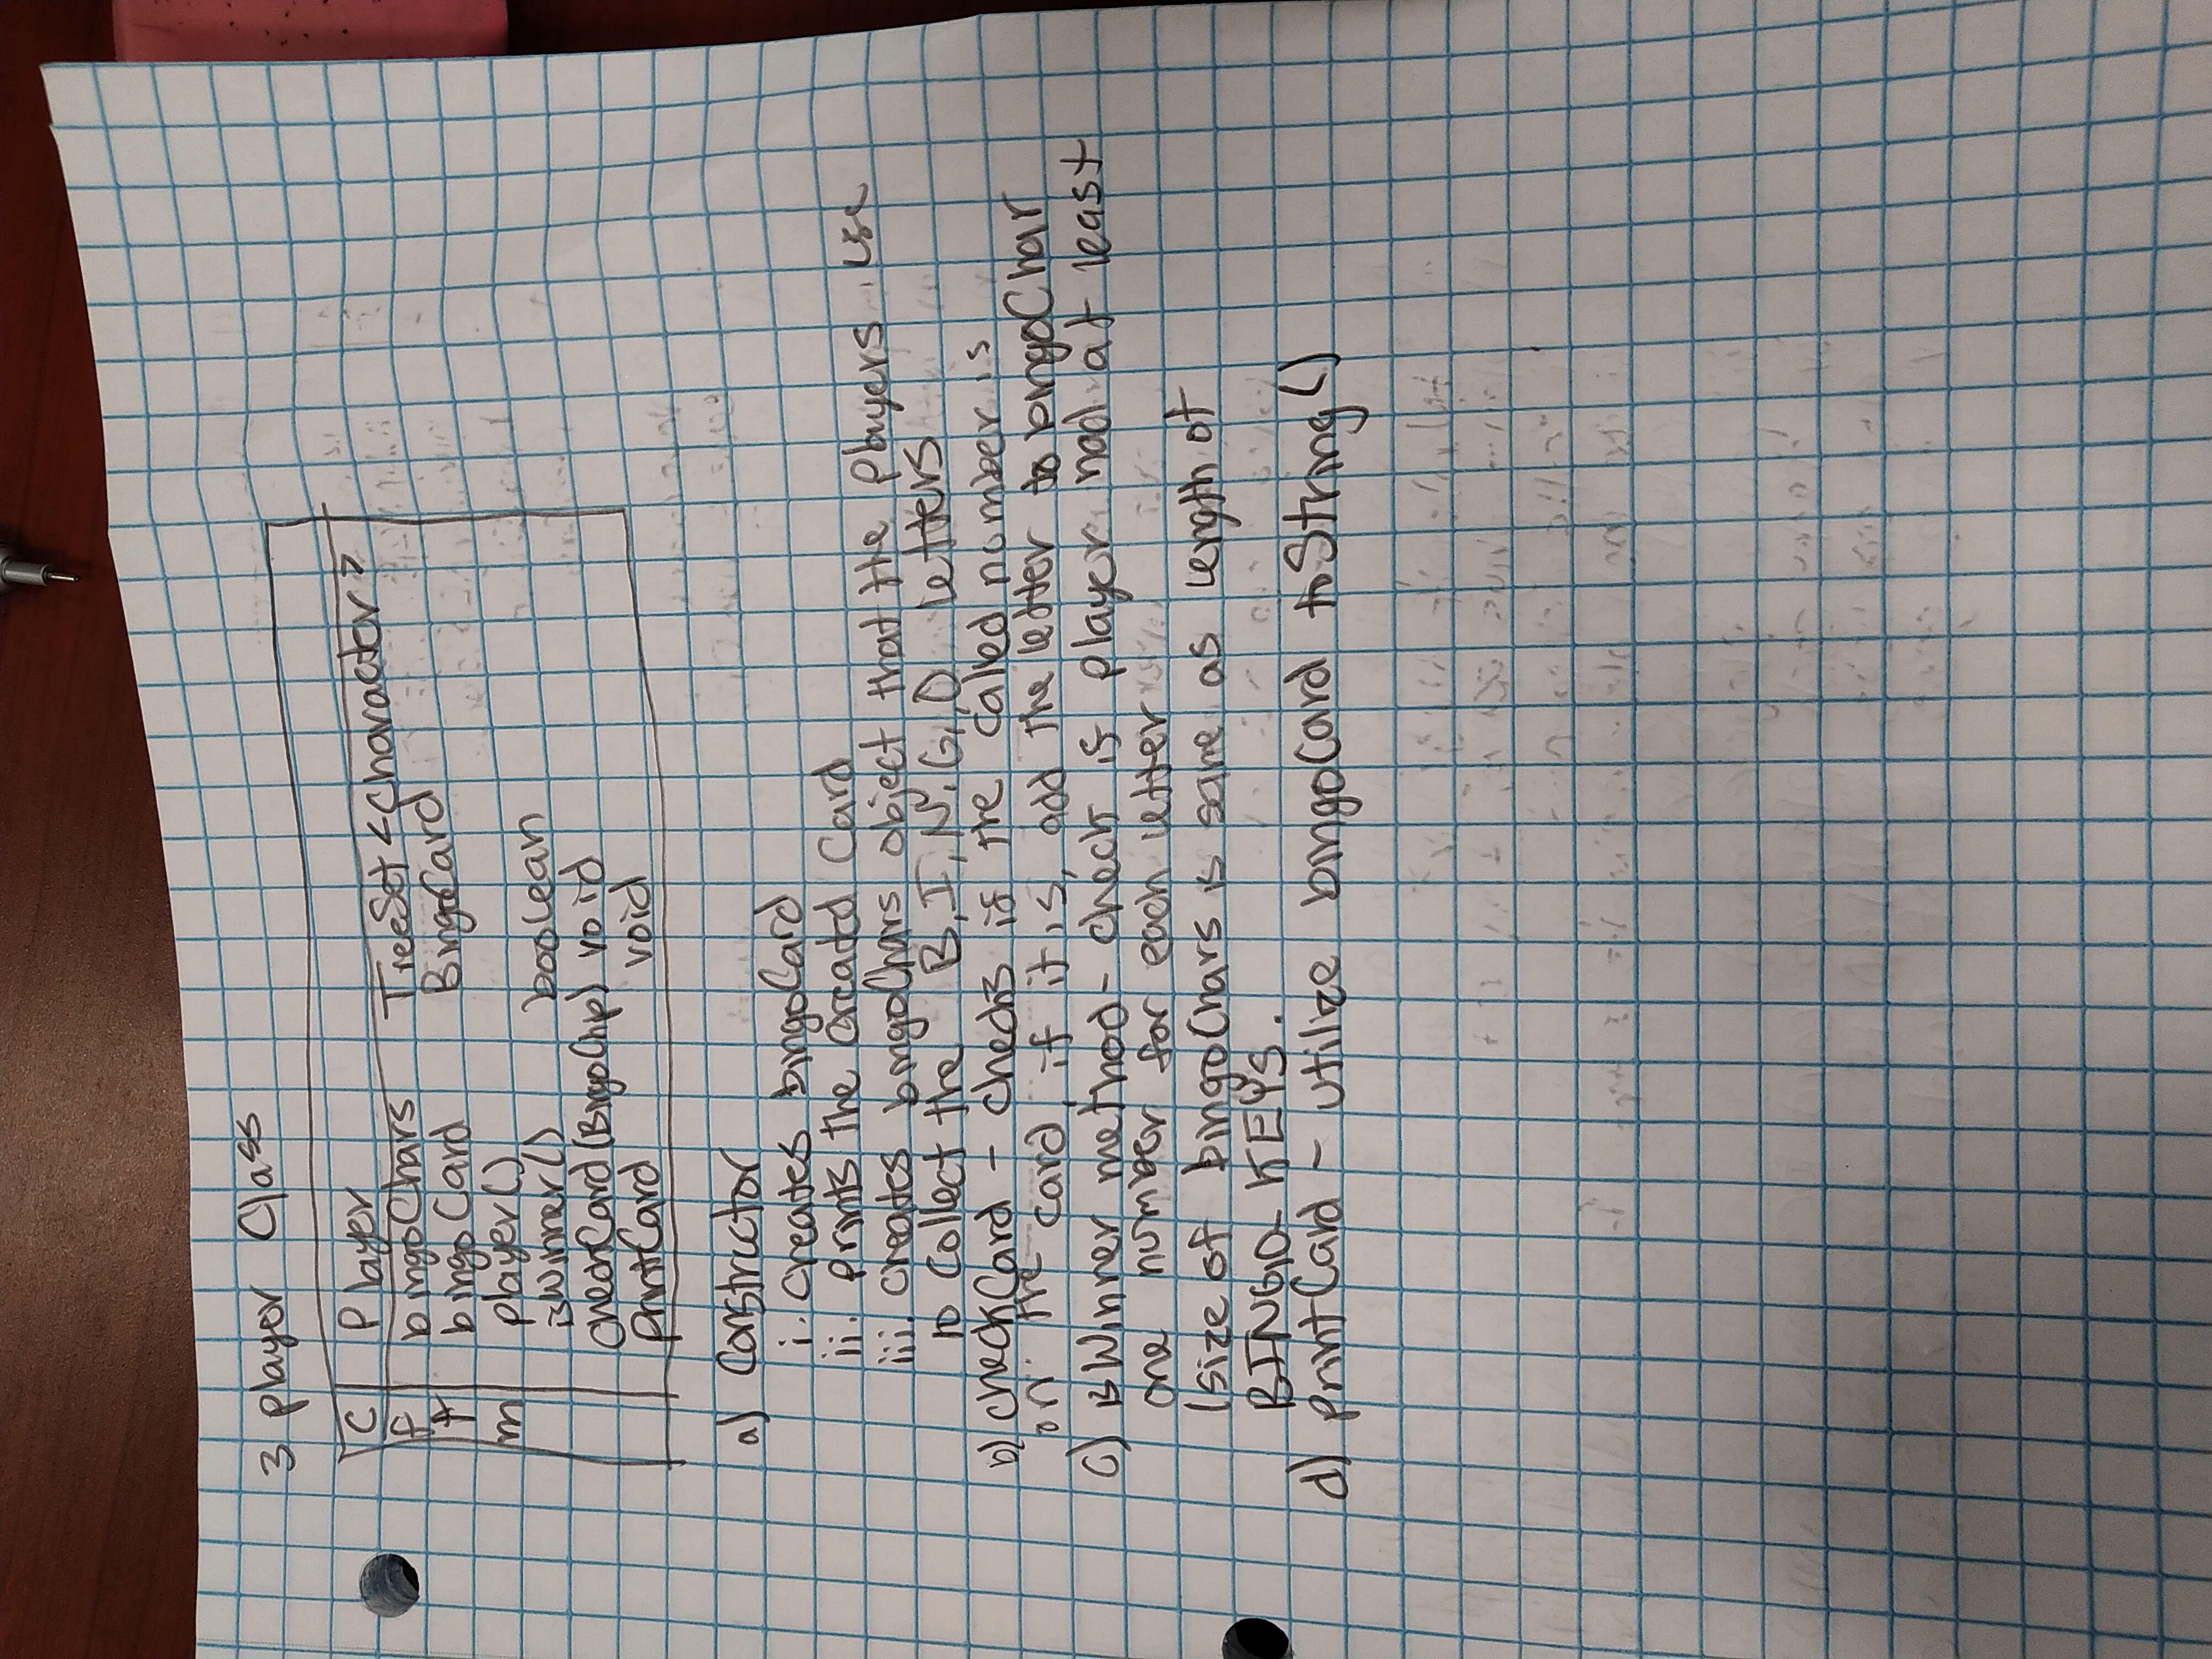 3 player Class
C Player
f bingoChars TreeSet <Character>
f bingoCard BingoCard
m player()
isWinner() boolean
checkCard(BingoChip) void
printCard void
a) Constructor
i. creates bingoCard
ii. prints the created Card
iii. creates bingoChars object that the players use
to collect the B, I, N, G, O letters
b) checkCard - checks if the called number is
on the card, if it is, add the letter to bingoChar
c) isWinner method - check is player had at least
one number for each letter
(size of bingoChars is same as length of
BINGO_KEYS.
d) printCard - utilize bingoCard toString()